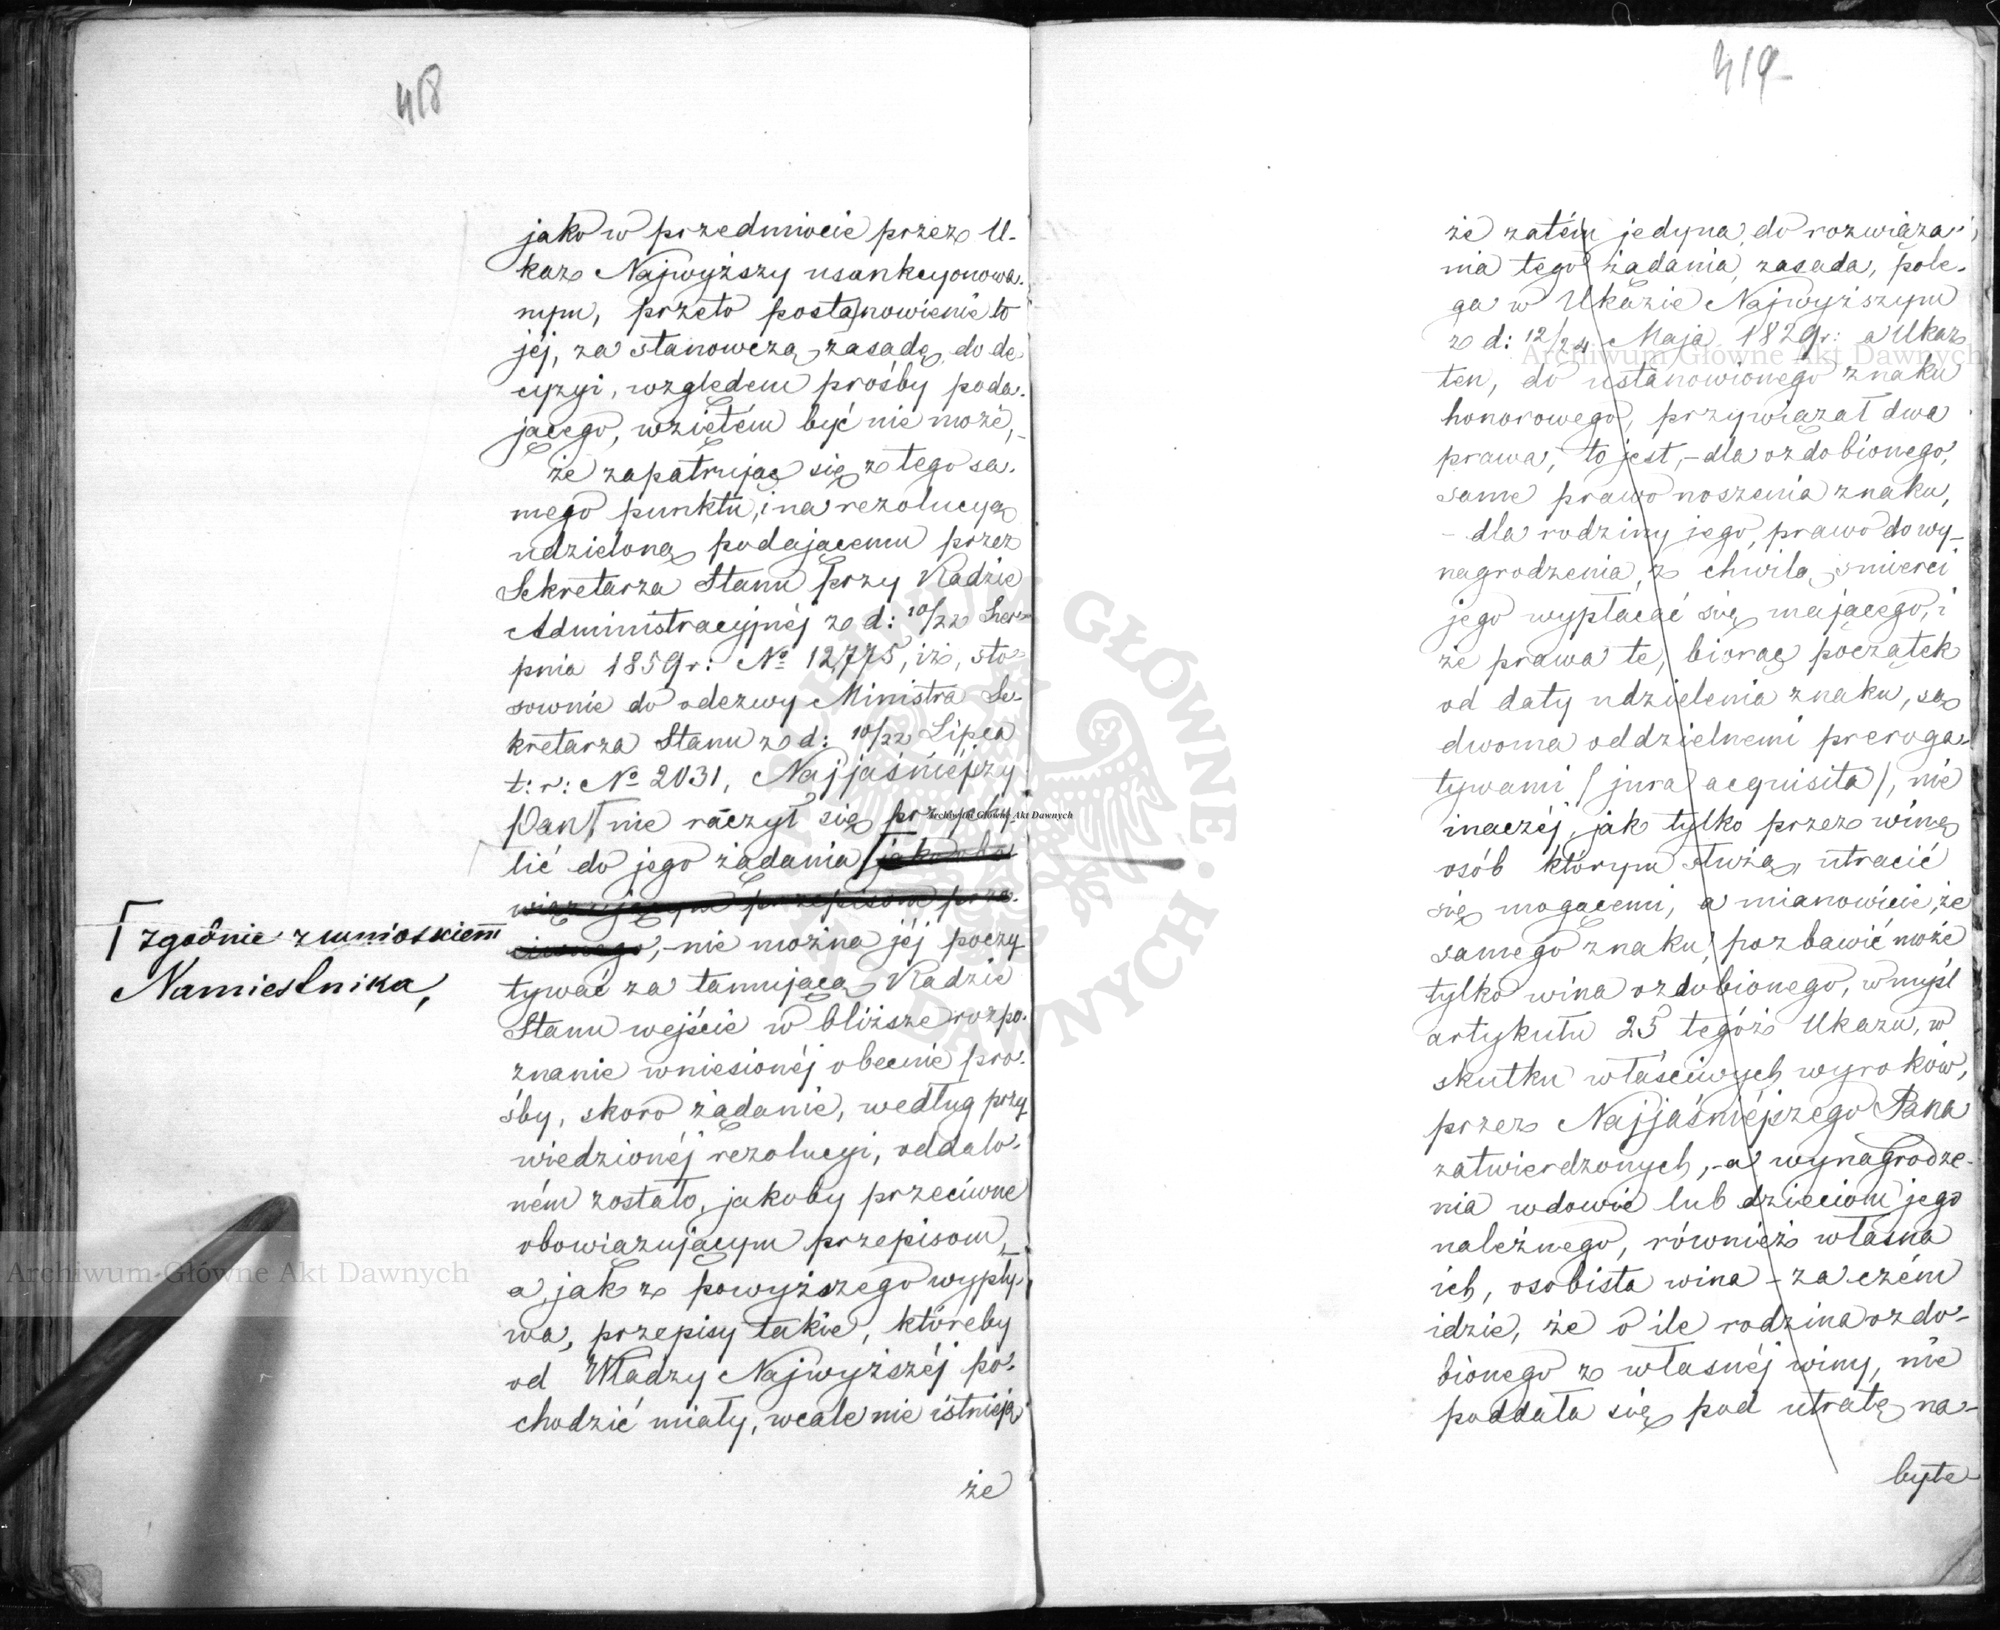 418
jako w przedmiocie przez U-
kaz Najwyższy usankcyonowa-
nym, przeto postanowienie to
jéj, za stanowczą zasadę do de-
cyzyi, względem prośby poda-
jącego, wziętém być nie może,-
że zapatrując się z tego sa-
mego punktu, i na rezolucyą
udzieloną podającemu przez
Sekretarza Stanu przy Radzie
Administracyjnéj z d: 10/22 Sier-
pnia 1859 r: No 12,775, iż, sto-
sownie do odezwy Ministra Se-
kretarza Stanu z d: 10/22 Lipca
t: r: No 2031, Najjaśniéjszy
Pan nie raczył się przychy-
lić do jego żądania jako obo-
wiązującym przepisom prze-
ciwnego,- nie można jéj poczy-
tywać za tamującą Radzie
Stanu wejście w bliższe rozpo-
znanie wniesionéj obecnie pro-
śby, skoro żądanie, według przy-
wiedzionéj rezolucyi, oddalo-
ném zostało, jakoby przeciwne
obowiązującym przepisom,
a jak z powyższego wypły-
wa, przepisy takie, któreby
od Władzy Najwyższéj po-
chodzić miały, wcale nie istnieją,
że
zgodnie z wnioskiem
Namiestnika,
419
że zatém jedyna do rozwiąza-
nia tego żądania zasada, pole-
ga w Ukazie Najwyższym
z d: 12/24 Maja 1829 r: a Ukaz
ten, do ustanowionego znaku
honorowego, przywiązał dwa
prawa, to jest,- dla ozdobionego,
same prawo noszenia znaku,
- dla rodziny jego, prawo do wy-
nagrodzenia, z chwilą śmierci
jego wypłacać się mającego, i
że prawa te, biorąc początek
od daty udzielenia znaku, są
dwoma oddzielnemi preroga-
tywami (jura acquisita), nie
inaczéj, jak tylko przez winę
osób którym służą, utracić
się mogącemi, a mianowicie, że
samego znaku, pozbawić może
tylko wina ozdobionego, w myśl
artykułu 25 tegóż Ukazu, w
skutku właściwych wyroków,
przez Najjaśniéjszego Pana
zatwierdzonych,- a wynagrodze-
nia wdowie lub dzieciom jego
należnego, również własna
ich, osobista wina - za czém
idzie, że o ile rodzina ozdo-
bionego z własnéj winy, nie
poddała się pod utratę na-
byte-
Archiwum Główne Akt Dawnych
Archiwum Główne Akt Dawnych
Archiwum Główne Akt Dawnych
ARCHIWUM GŁÓWNE AKT DAWNYCH